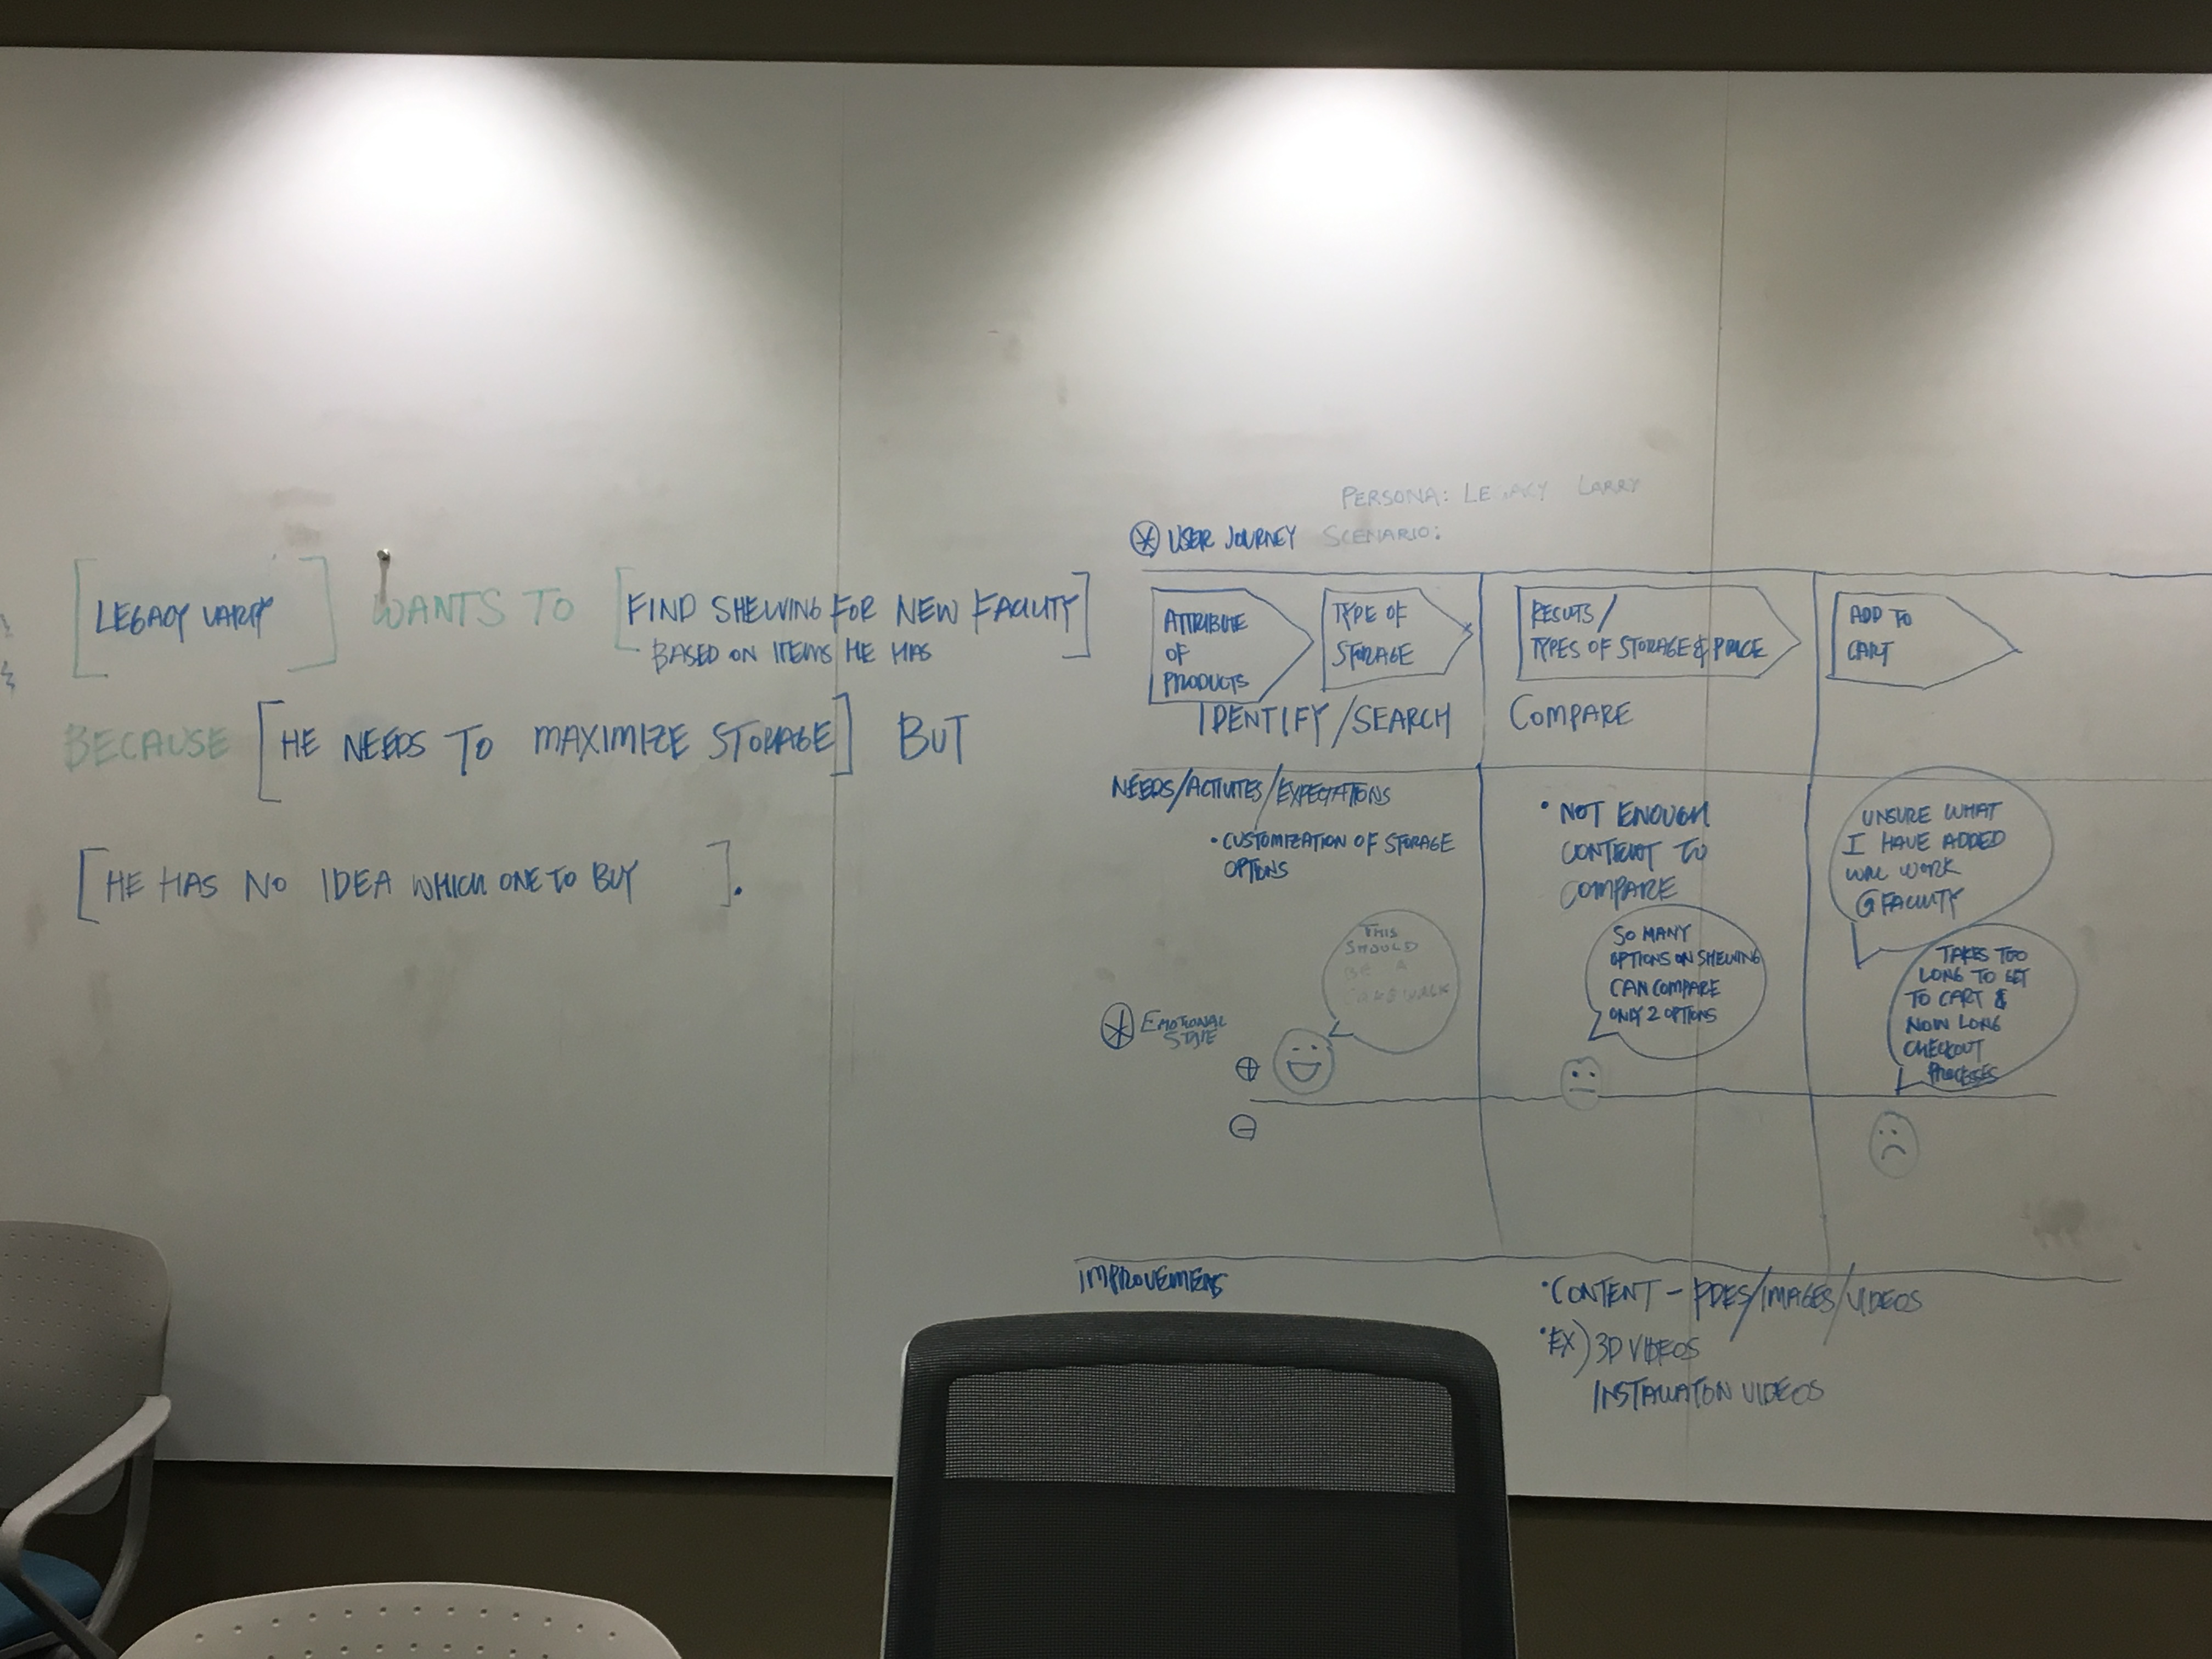 [LEGACY LARRY] WANTS TO [FIND SHELVING FOR NEW FACILITY
BASED ON ITEMS HE HAS]
BECAUSE [HE NEEDS TO MAXIMIZE STORAGE] BUT
[HE HAS NO IDEA WHICH ONE TO BUY].
PERSONA: LEGACY LARRY
USER JOURNEY SCENARIO:
ATTRIBUTE
OF
PRODUCTS
TYPE OF
STORAGE
IDENTIFY/SEARCH
RESULTS/
TYPES OF STORAGE & PRICE
COMPARE
ADD TO
CART
NEEDS/ACTIVITES/EXPECTATIONS
• CUSTOMIZATION OF STORAGE
OPTIONS
• NOT ENOUGH
CONTENT TO
COMPARE
UNSURE WHAT
I HAVE ADDED
WILL WORK
@ FACILITY
THIS
SHOULD
BE A
CAKEWALK
SO MANY
OPTIONS ON SHELVING
CAN COMPARE
ONLY 2 OPTIONS
TAKES TOO
LONG TO GET
TO CART &
NOW LONG
CHECKOUT
PROCESSES
EMOTIONAL
STATE
+
-
IMPROVEMENTS
• CONTENT - PDFS/IMAGES/VIDEOS
• EX) 3D VIDEOS
INSTALLATION VIDEOS